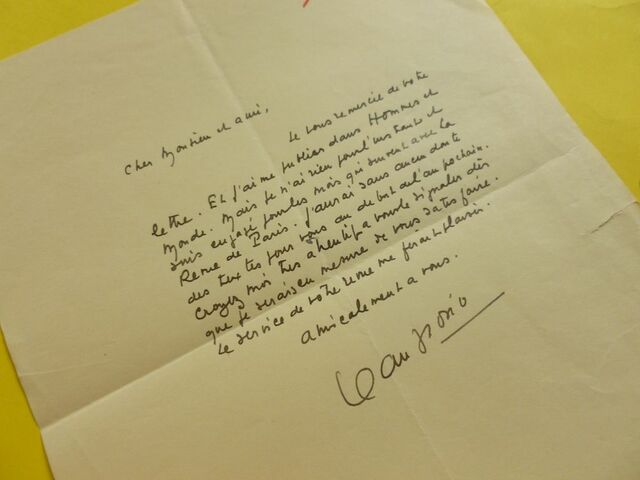 Cher Monsieur et ami,
Je vous remercie de votre
lettre. Et j'aime publier dans Hommes et
Monde. Mais je n'ai rien pour l'instant et
suis engagé pour les mois qui suivent avec la
Revue de Paris. J'aurai sans aucun doute
des textes pour vous au début de l'an prochain.
Croyez moi très attentif à vous le signaler dès
que je serais en mesure de vous satisfaire.
Le service de votre revue me ferait plaisir.
Amicalement à vous.
Jean Giono